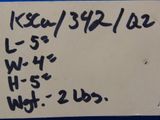 KSCu/342/Q2
L-5"
W-4"
H-5"
Wgt.-2 Lbs.